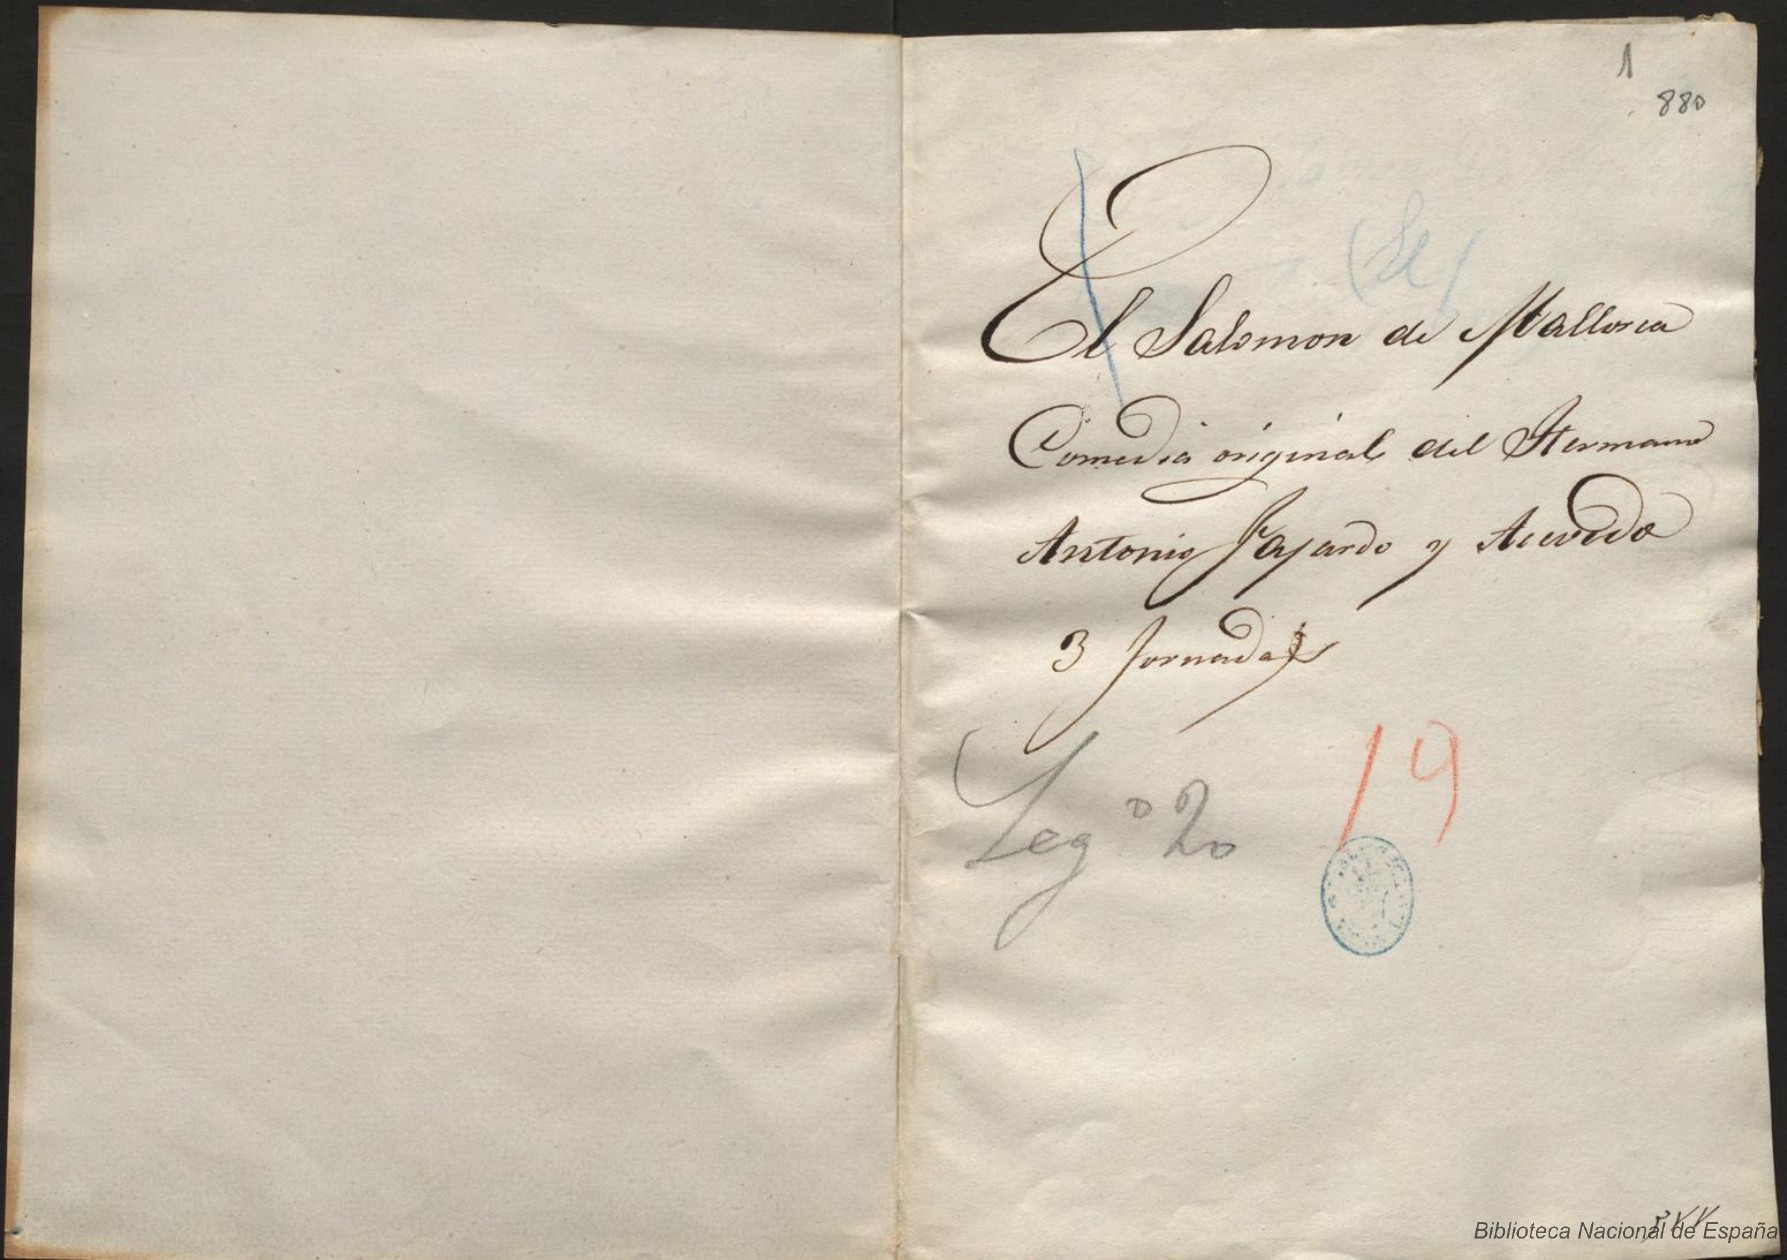 1
880
El Salomon de Mallorca
Comedia original del Hermano
Antonio Fajardo y Acevedo
3 Jornadas
Leg.º 20
19
Biblioteca Nacional de España